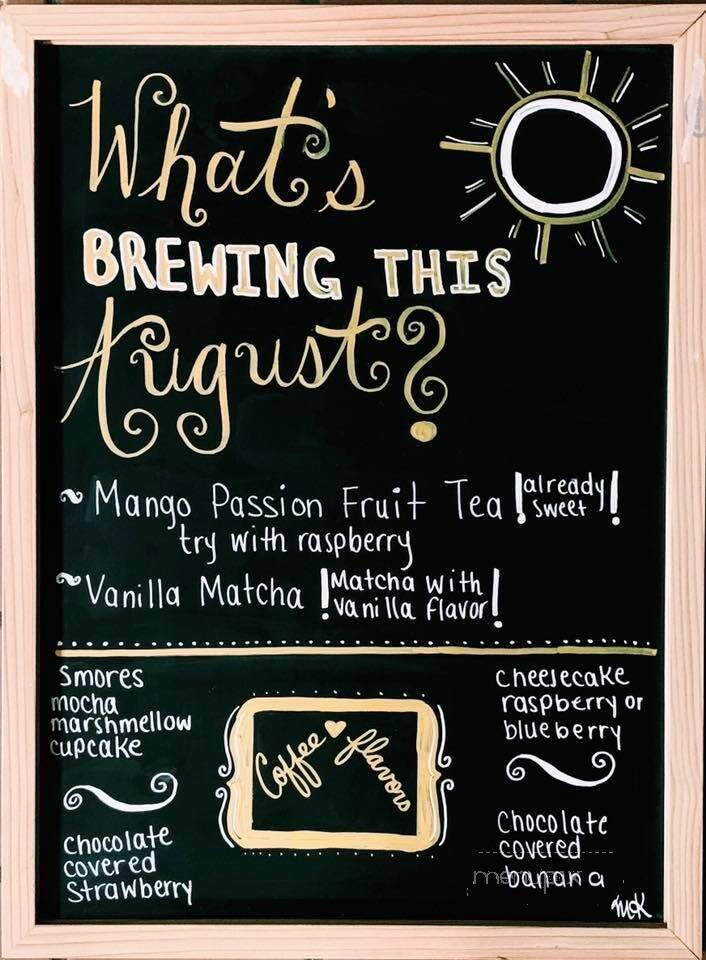 What's
BREWING THIS
August?
~ Mango Passion Fruit Tea !already sweet!
try with raspberry
~ Vanilla Matcha !Matcha with vanilla flavor!
Smores
mocha
marshmellow
cupcake
Chocolate
covered
Strawberry
Coffee ♥ flavors
Cheesecake
raspberry or
blueberry
Chocolate
covered
banana
menupix